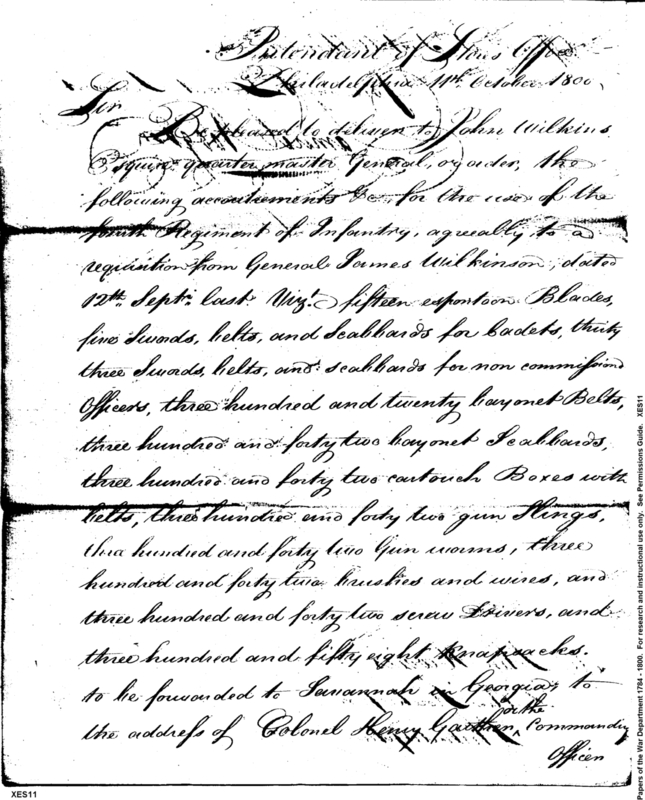 Intendant of Stores Office
Philadelphia 11th October 1800
Sir
Be pleased to deliver to John Wilkins
Esquire quarter master General, or order, the
following accoutrements &c, for the use of the
fourth Regiment of Infantry, agreeally to a
requisition from General James Wilkinson, dated
12th Septr. last. Vizt. fifteen espontoon Blades,
five Swords, belts, and Scabbards for Cadets, thirty
three Swords, belts, and scabbards for non commissiond
Officers, three hundred and twenty bayonet Belts,
three hundred and forty two bayonet Scabbards,
three hundred and forty two cartouch Boxes with
belts, three hundred and forty two gun Slings,
three hundred and forty two Gun worms, three
hundred and forty two brushes and wires, and
three hundred and forty two screw Drivers, and
three hundred and fifty eight Knapsacks.
to be forwarded to Savannah in Georgia, to
the address of Colonel Henry Gaither, or the Commandg
Officer
XES11
Papers of the War Department 1784 - 1800. For research and instructional use only. See Permissions Guide. XES11